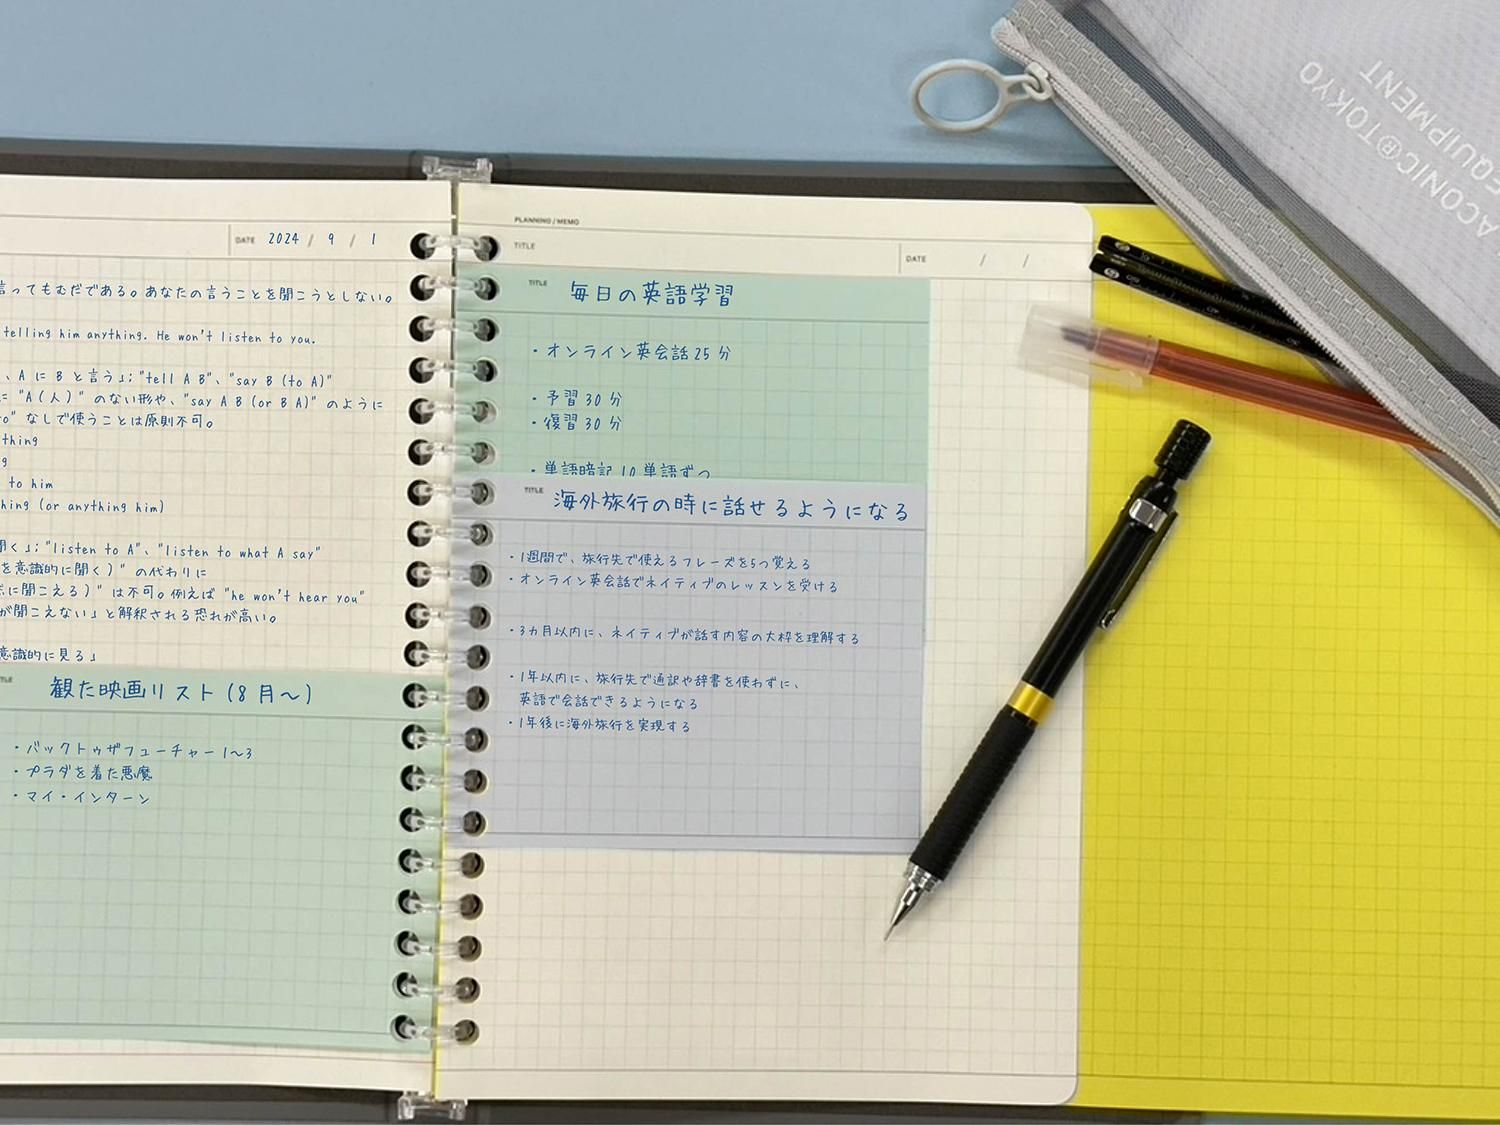 DATE 2024 / 9 / 1
言ってもむだである。あなたの言うことを聞こうとしない。
telling him anything. He won't listen to you.
、A に B と言う」; "tell A B"、"say B (to A)"
に "A(人)" のない形や、"say A B (or B A)" のように
なしで使うことは原則不可。
thing
g
to him
hing (or anything him)
聞く」; "listen to A"、"listen to what A say"
を意識的に聞く)" の代わりに
に聞こえる)" は不可。例えば "he won't hear you"
が聞こえない」と解釈される恐れが高い。
意識的に見る」
観た映画リスト(8月〜)
・バックトゥザフューチャー 1〜3
・プラダを着た悪魔
・マイ・インターン
PLANNING / MEMO
TITLE
DATE / /
TITLE 毎日の英語学習
・オンライン英会話 25 分
・予習 30 分
・復習 30 分
・単語暗記 10 単語ずつ
TITLE 海外旅行の時に話せるようになる
・1週間で、旅行先で使えるフレーズを5つ覚える
・オンライン英会話でネイティブのレッスンを受ける
・3カ月以内に、ネイティブが話す内容の大枠を理解する
・1年以内に、旅行先で通訳や辞書を使わずに、
英語で会話できるようになる
・1年後に海外旅行を実現する
ACONIC®TOKYO
EQUIPMENT